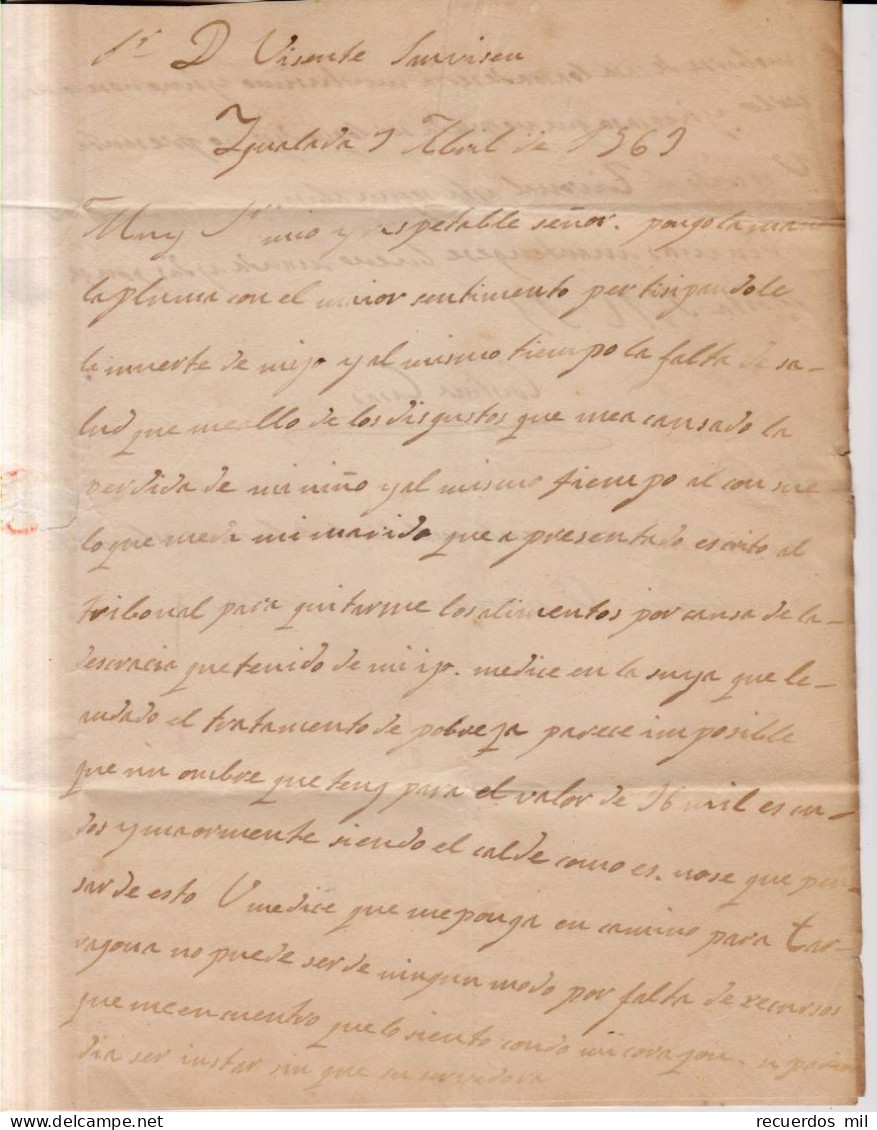 Sr D Visente
Igualada 9 Abril de 1869
Muy Sr mio y respetable señor. pongo la mano
la pluma con el maior sentimento pertisipandole
la muerte de mijo y al mismo tiempo la falta de sa-
lud que meallo de los disgustos que mea causado la
perdida de mi niño y al mismo tiempo al consue
lo que meda mi marido que a presentado escrito al
tribonal para quitarme los alimentos por causa de la
descracia que tenido de mi ijo. medice en la suya que le-
andado el tratamento de pobreza parece imposible
que un ombre que teng para el valor de 16 mil escu-
dos y maormente siendo el calde como es. nose que pen-
sar de esto V medice que me ponga en camino para tar-
ragona no puede ser de ningun modo por falta de recursos
que me encuentro que lo siento condo mi corazon. si podria
dia ser instar sin que su servidora
recuerdos mil